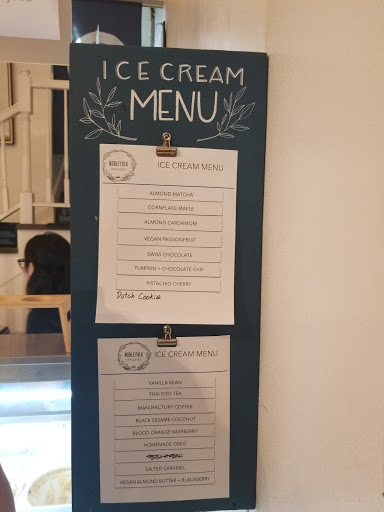 ICE CREAM
MENU
NOBLE FOLK
ICE CREAM MENU
ALMOND MATCHA
CORNFLAKE MAPLE
ALMOND CARDAMOM
VEGAN PASSIONFRUIT
SWISS CHOCOLATE
PUMPKIN + CHOCOLATE CHIP
PISTACHIO CHERRY
Dutch Cookie
NOBLE FOLK
ICE CREAM MENU
VANILLA BEAN
THAI ICED TEA
MANUFACTORY COFFEE
BLACK SESAME COCONUT
BLOOD ORANGE RASPBERRY
HOMEMADE OREO
SALTED CARAMEL
VEGAN ALMOND BUTTER + BLACKBERRY